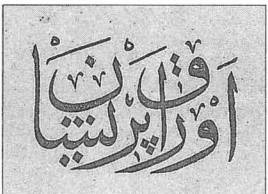 اوراق پریشان